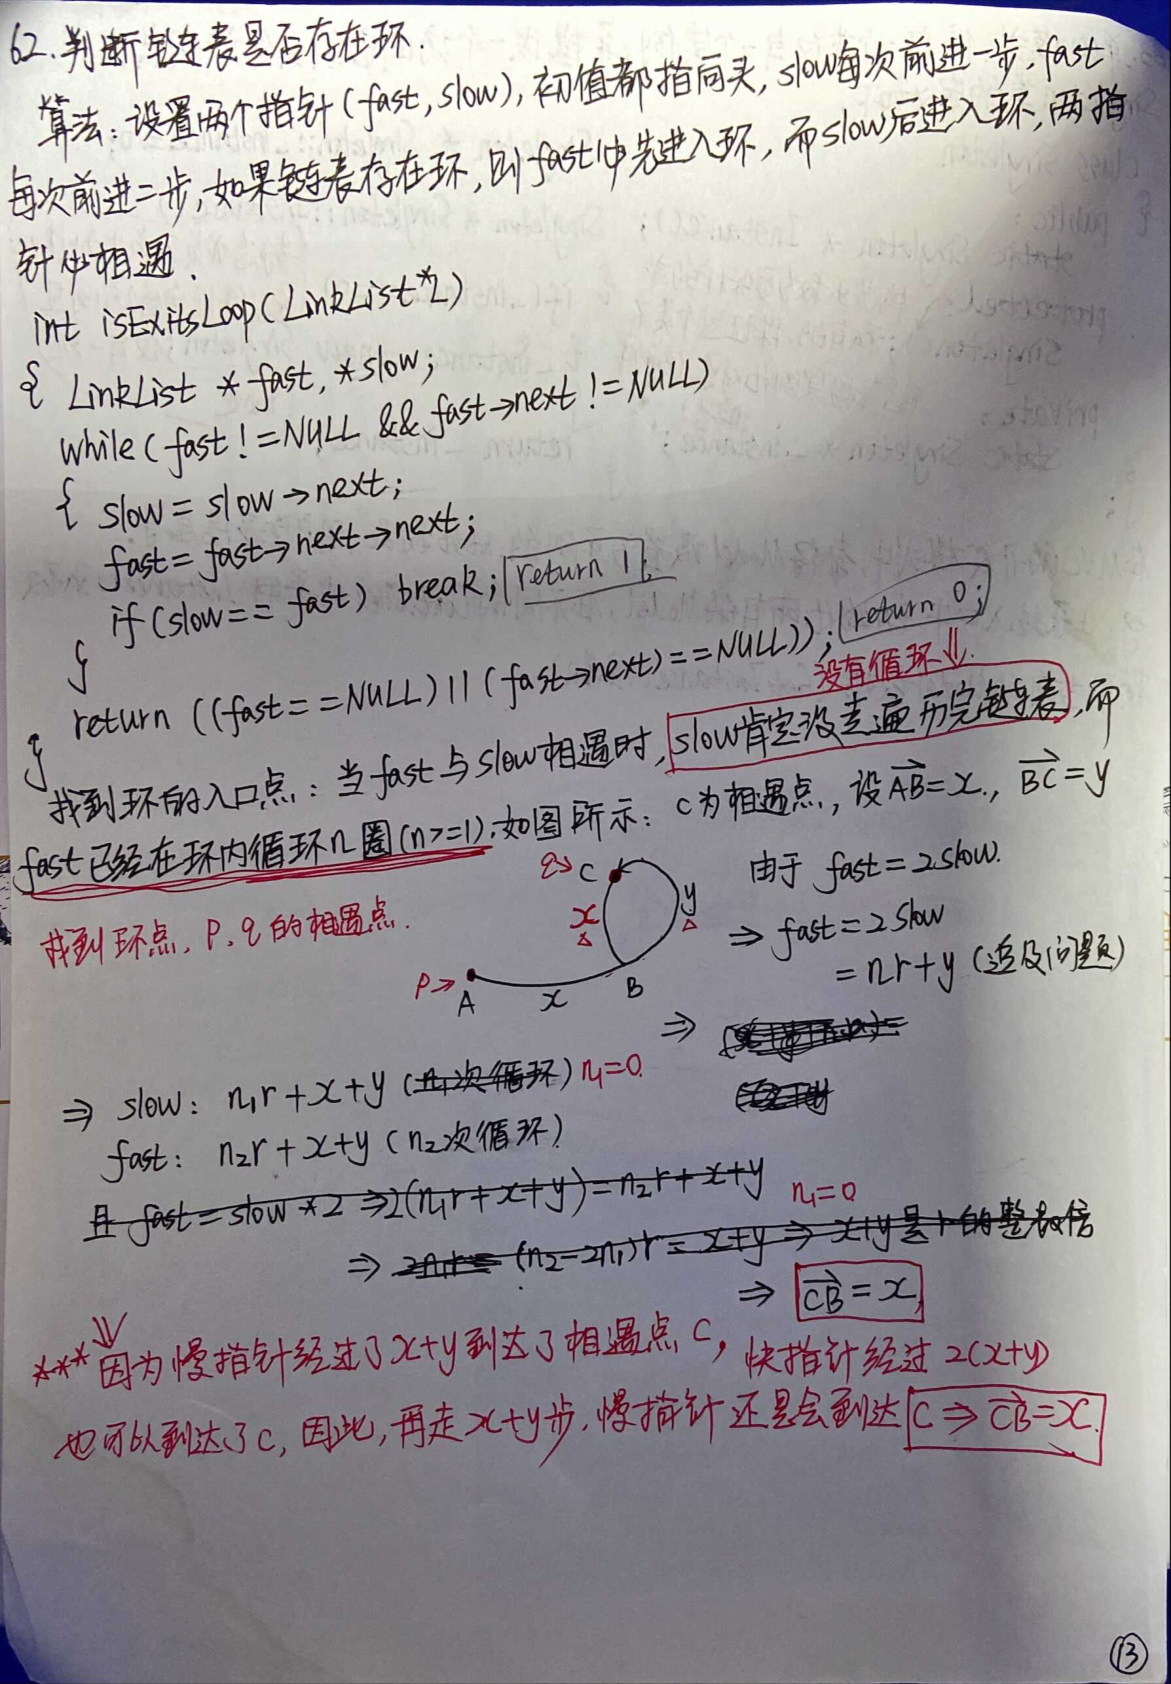 62.判断链表是否存在环.
算法:设置两个指针(fast,slow),初值都指向头,slow每次前进一步,fast
每次前进二步,如果链表存在环,则fast必先进入环,而slow后进入环,两指
针必相遇.
int isExitsLoop(LinkList*L)
{ LinkList *fast, *slow;
while(fast!=NULL && fast→next!=NULL)
{ slow=slow→next;
fast=fast→next→next;
if(slow==fast) break; return 1;
}
return ((fast==NULL)||(fast→next)==NULL)); return 0;
}
没有循环⇓.
找到环的入口点:当fast与slow相遇时,slow肯定没走遍历完链表,而
fast已经在环内循环n圈(n>=1).如图所示:C为相遇点,设AB=x, BC=y
q→ C
由于 fast=2slow.
x y
⇒ fast=2slow
找到环点,P、q的相遇点.
=nr+y (追及问题)
P→ A x B
⇒
⇒ slow: n₁r+x+y (n₁次循环) n₁=0.
fast: n₂r+x+y (n₂次循环)
且 fast=slow*2 ⇒2(n₁r+x+y)=n₂r+x+y
n₁=0
⇒ (n₂-2n₁)r=x+y ⇒ x+y是r的整数倍
⇒ CB=x,
***因为慢指针经过了x+y到达了相遇点C,快指针经过2(x+y)
也可以到达了C,因此,再走x+y步,慢指针还是会到达C⇒CB=x.
13